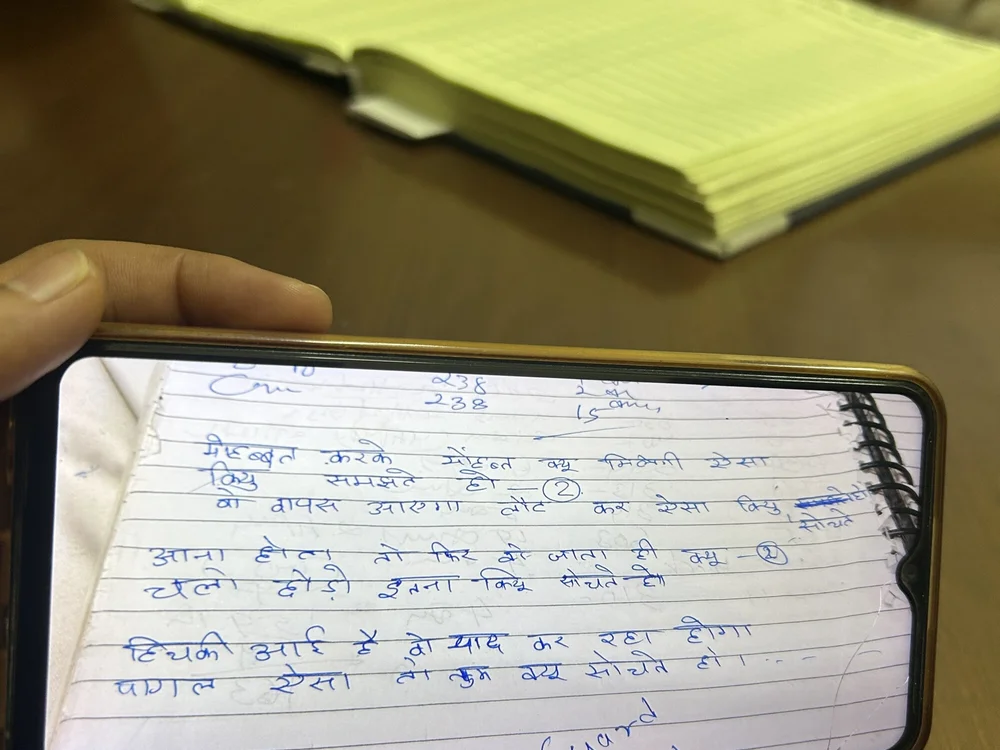 238
238
15
मोहब्बत करके मोंहब्त क्यू मिलेगी ऐसा
कियु समझते हो —②
वो वापस आएगा लौट कर ऐसा कियु
सोचते हो
आना होता तो फिर वो जाता ही क्यू —②
चलो छोड़ो इतना कियू सोचते हो
हिचकी आई है वो याद कर रहा होगा
पागल ऐसा तो तुम क्यू सोचते हो।